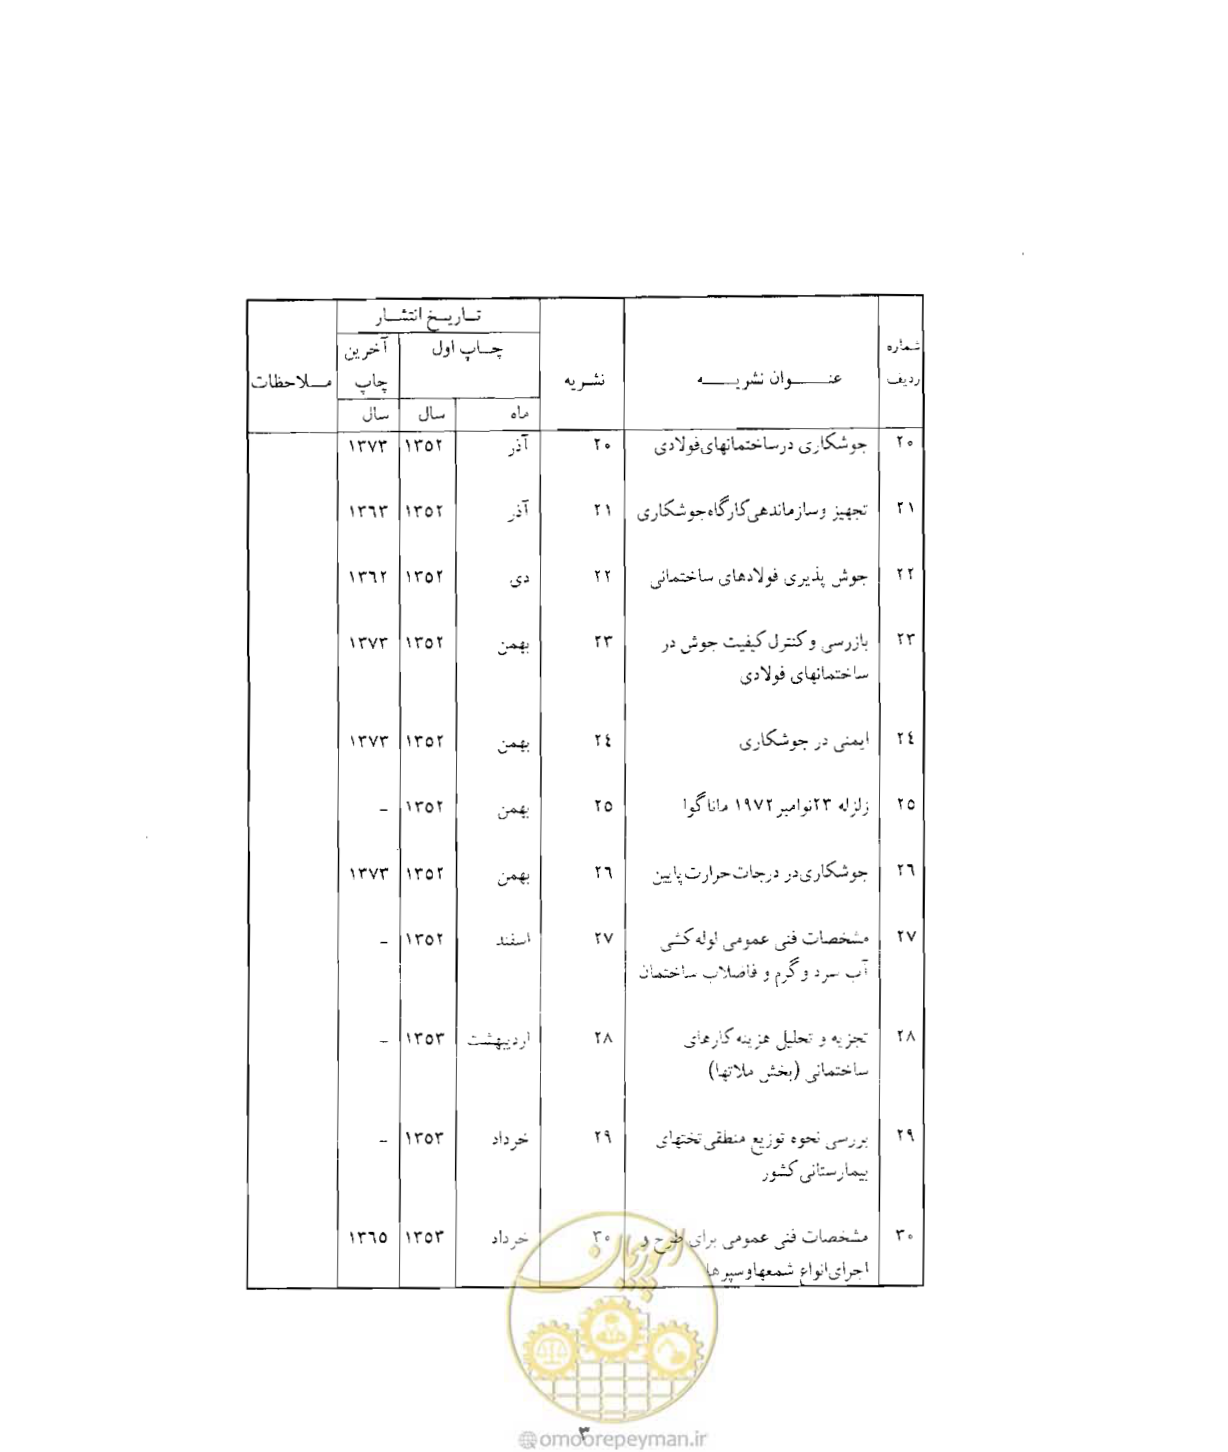 تاریخ انتشار
شماره ردیف | عنوان نشریه | نشریه | چاپ اول | آخرین چاپ | ملاحظات
ماه | سال | سال
۲۰ | جوشکاری در ساختمانهای فولادی | ۲۰ | آذر | ۱۳۵۲ | ۱۳۷۳
۲۱ | تجهیز و سازماندهی کارگاه جوشکاری | ۲۱ | آذر | ۱۳۵۲ | ۱۳۶۳
۲۲ | جوش پذیری فولادهای ساختمانی | ۲۲ | دی | ۱۳۵۲ | ۱۳۶۲
۲۳ | بازرسی و کنترل کیفیت جوش در | ۲۳ | بهمن | ۱۳۵۲ | ۱۳۷۳
ساختمانهای فولادی
۲۴ | ایمنی در جوشکاری | ۲۴ | بهمن | ۱۳۵۲ | ۱۳۷۳
۲۵ | زلزله ۲۳ نوامبر ۱۹۷۲ ماناگوا | ۲۵ | بهمن | ۱۳۵۲ | –
۲۶ | جوشکاری در درجات حرارت پایین | ۲۶ | بهمن | ۱۳۵۲ | ۱۳۷۳
۲۷ | مشخصات فنی عمومی لوله کشی | ۲۷ | اسفند | ۱۳۵۲ | –
آب سرد و گرم و فاضلاب ساختمان
۲۸ | تجزیه و تحلیل هزینه کارهای | ۲۸ | اردیبهشت | ۱۳۵۳ | –
ساختمانی (بخش ملاتها)
۲۹ | بررسی نحوه توزیع منطقی تختهای | ۲۹ | خرداد | ۱۳۵۳ | –
بیمارستانی کشور
۳۰ | مشخصات فنی عمومی برای طرح و | ۳۰ | خرداد | ۱۳۵۳ | ۱۳۶۵
اجرای انواع شمعها و سپرها
امور پیمان
۳
@omoorepeyman.ir